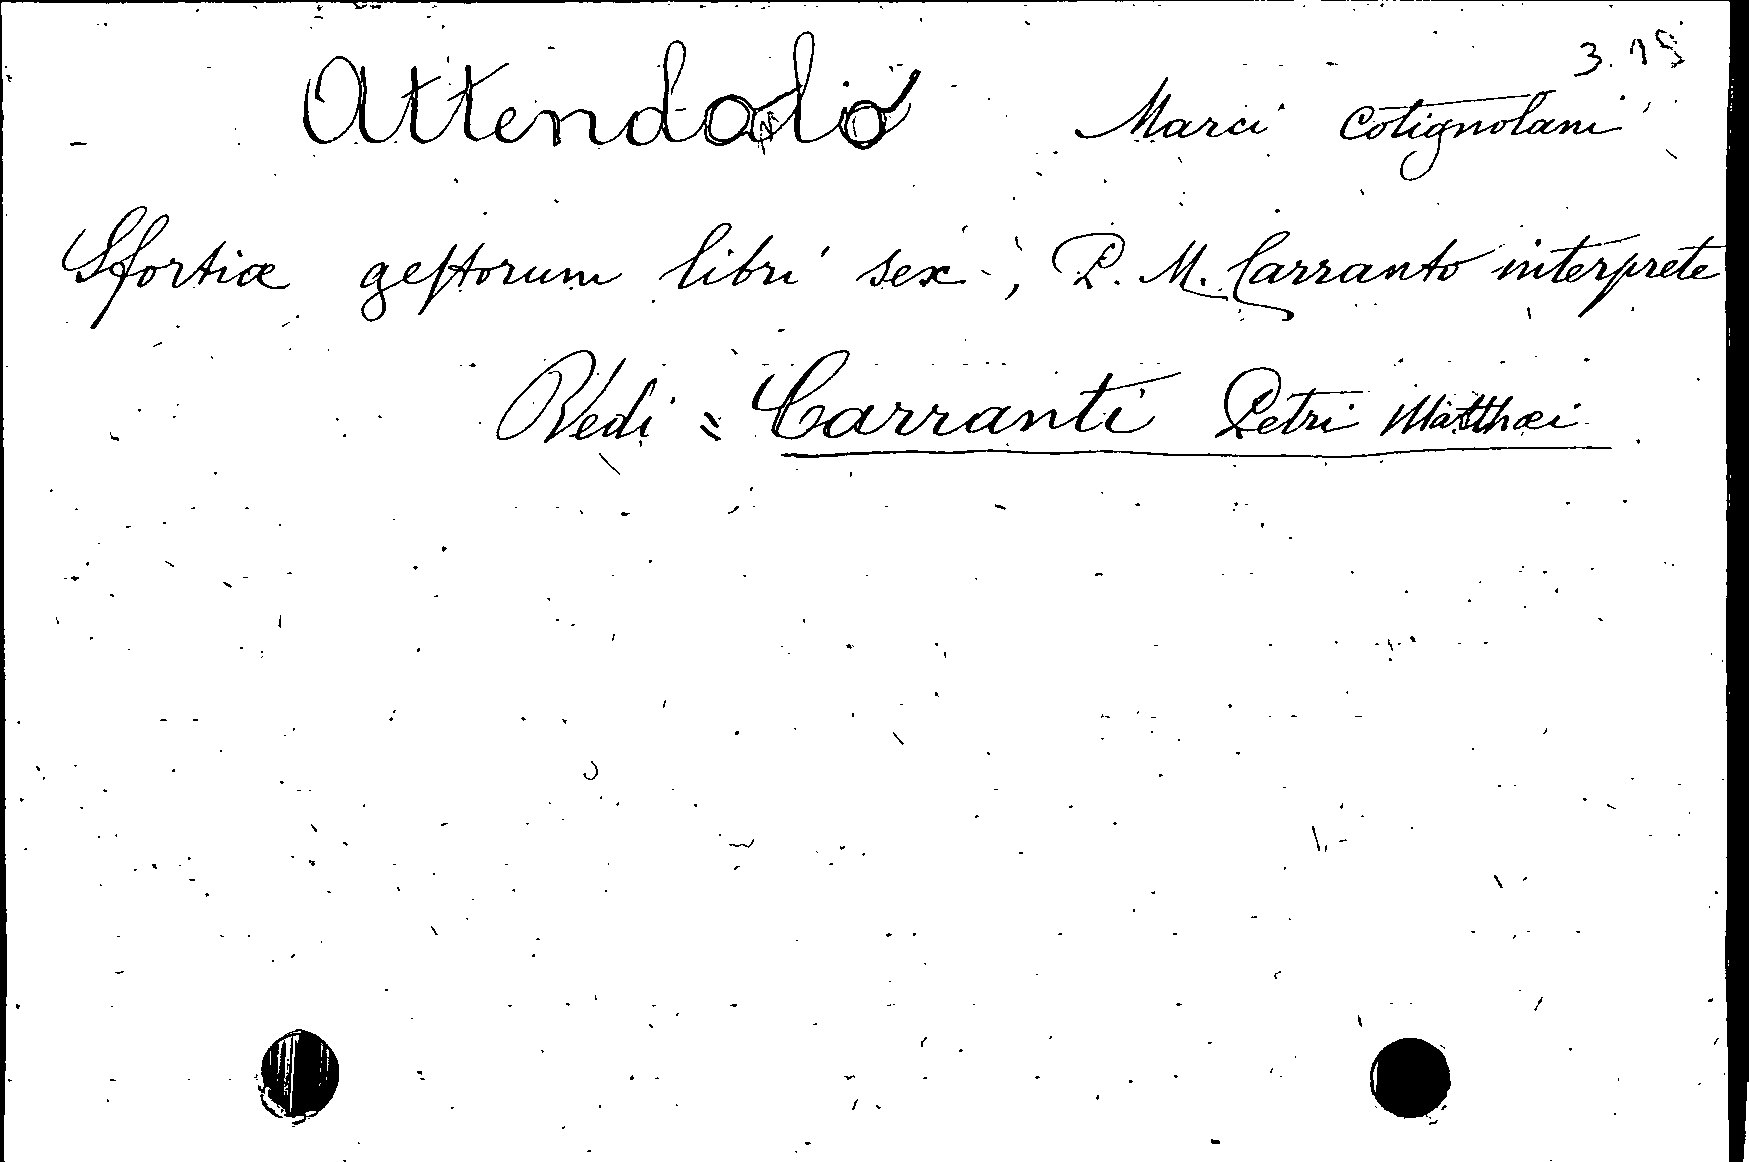 3. 18
Attendolo Marci Cotignolani
Sfortiæ gestorum libri sex, P. M. Carranto interprete
Vedi = Carranti Petri Matthæi